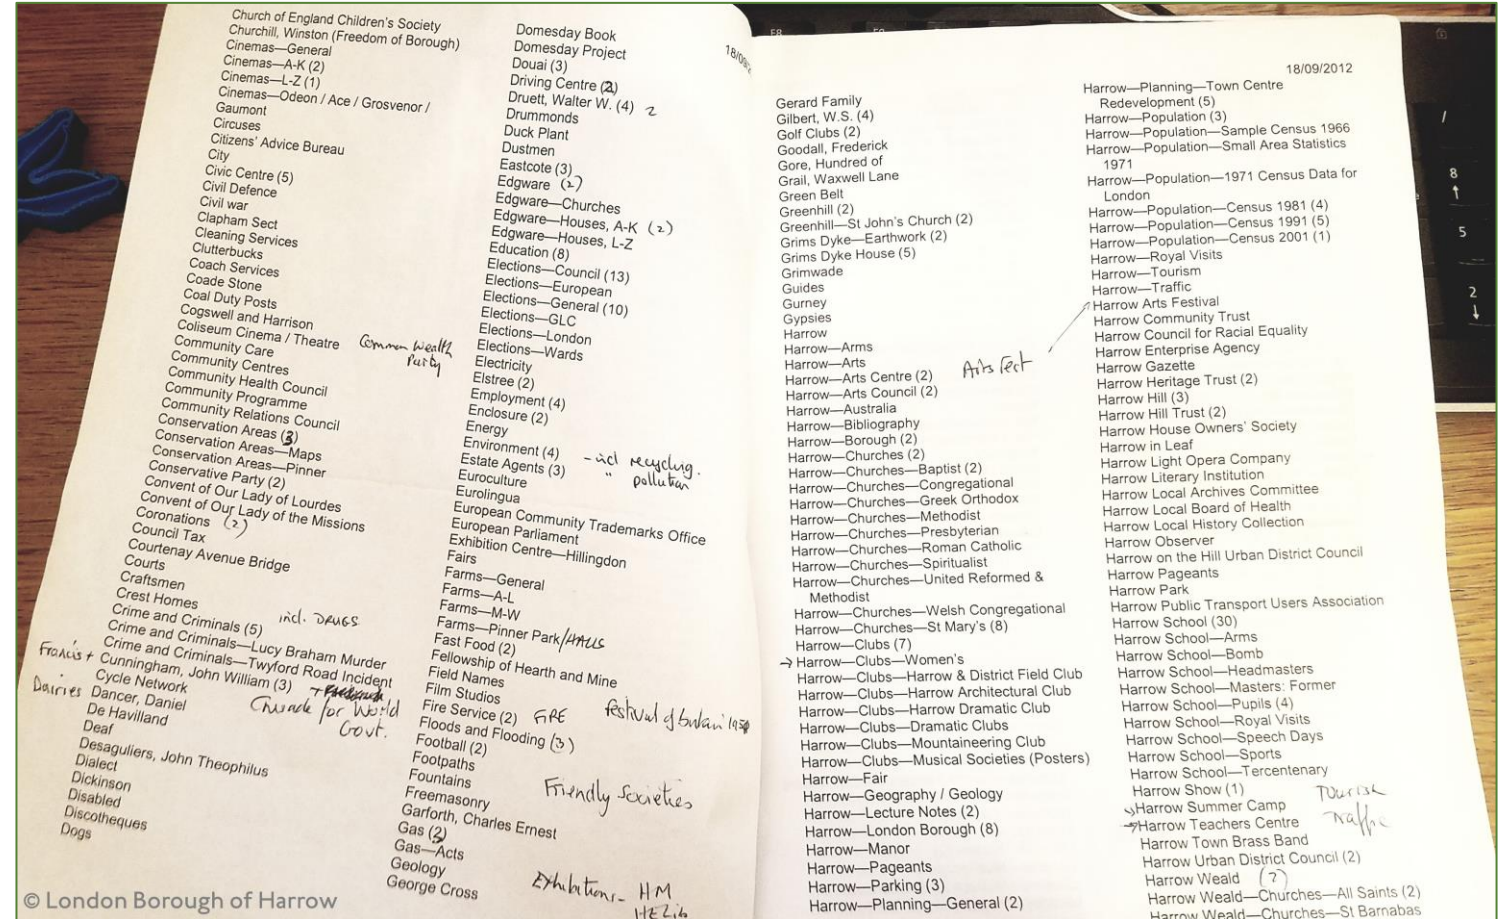 Church of England Children's Society
Churchill, Winston (Freedom of Borough)
Cinemas—General
Cinemas—A-K (2)
Cinemas—L-Z (1)
Cinemas—Odeon / Ace / Grosvenor /
Gaumont
Circuses
Citizens' Advice Bureau
City
Civic Centre (5)
Civil Defence
Civil war
Clapham Sect
Cleaning Services
Clutterbucks
Coach Services
Coade Stone
Coal Duty Posts
Cogswell and Harrison
Coliseum Cinema / Theatre
Common Wealth
Party
Community Care
Community Centres
Community Health Council
Community Programme
Community Relations Council
Conservation Areas (3)
Conservation Areas—Maps
Conservation Areas—Pinner
Conservative Party (2)
Convent of Our Lady of Lourdes
Convent of Our Lady of the Missions
Coronations (2)
Council Tax
Courtenay Avenue Bridge
Courts
Craftsmen
Crest Homes
Crime and Criminals (5) incl. DRUGS
Crime and Criminals—Lucy Braham Murder
Crime and Criminals—Twyford Road Incident
Francis + Cunningham, John William (3)
Crusade for World
Govt.
Cycle Network
Dairies
Dancer, Daniel
De Havilland
Deaf
Desaguliers, John Theophilus
Dialect
Dickinson
Disabled
Discotheques
Dogs
18/09/2
Domesday Book
Domesday Project
Douai (3)
Driving Centre (2)
Druett, Walter W. (4) 2
Drummonds
Duck Plant
Dustmen
Eastcote (3)
Edgware (2)
Edgware—Churches
Edgware—Houses, A-K (2)
Edgware—Houses, L-Z
Education (8)
Elections—Council (13)
Elections—European
Elections—General (10)
Elections—GLC
Elections—London
Elections—Wards
Electricity
Elstree (2)
Employment (4)
Enclosure (2)
Energy
Environment (4) - incl recycling.
" pollution
Estate Agents (3)
Euroculture
Eurolingua
European Community Trademarks Office
European Parliament
Exhibition Centre—Hillingdon
Fairs
Farms—General
Farms—A-L
Farms—M-W
Farms—Pinner Park/HALLS
Fast Food (2)
Fellowship of Hearth and Mine
Field Names
Film Studios
Fire Service (2) FIRE
Festival of Britain
Floods and Flooding (3)
Football (2)
Footpaths
Fountains
Freemasonry
Friendly Societies
Garforth, Charles Ernest
Gas (2)
Gas—Acts
Geology
George Cross
Exhibitions - HM
18/09/2012
Gerard Family
Gilbert, W.S. (4)
Golf Clubs (2)
Goodall, Frederick
Gore, Hundred of
Grail, Waxwell Lane
Green Belt
Greenhill (2)
Greenhill—St John's Church (2)
Grims Dyke—Earthwork (2)
Grims Dyke House (5)
Grimwade
Guides
Gurney
Gypsies
Harrow
Harrow—Arms
Harrow—Arts
Harrow—Arts Centre (2)
Arts Fest
Harrow—Arts Council (2)
Harrow—Australia
Harrow—Bibliography
Harrow—Borough (2)
Harrow—Churches (2)
Harrow—Churches—Baptist (2)
Harrow—Churches—Congregational
Harrow—Churches—Greek Orthodox
Harrow—Churches—Methodist
Harrow—Churches—Presbyterian
Harrow—Churches—Roman Catholic
Harrow—Churches—Spiritualist
Harrow—Churches—United Reformed &
Methodist
Harrow—Churches—Welsh Congregational
Harrow—Churches—St Mary's (8)
Harrow—Clubs (7)
→ Harrow—Clubs—Women's
Harrow—Clubs—Harrow & District Field Club
Harrow—Clubs—Harrow Architectural Club
Harrow—Clubs—Harrow Dramatic Club
Harrow—Clubs—Dramatic Clubs
Harrow—Clubs—Mountaineering Club
Harrow—Clubs—Musical Societies (Posters)
Harrow—Fair
Harrow—Geography / Geology
Harrow—Lecture Notes (2)
Harrow—London Borough (8)
Harrow—Manor
Harrow—Pageants
Harrow—Parking (3)
Harrow—Planning—General (2)
Harrow—Planning—Town Centre
Redevelopment (5)
Harrow—Population (3)
Harrow—Population—Sample Census 1966
Harrow—Population—Small Area Statistics
1971
Harrow—Population—1971 Census Data for
London
Harrow—Population—Census 1981 (4)
Harrow—Population—Census 1991 (5)
Harrow—Population—Census 2001 (1)
Harrow—Royal Visits
Harrow—Tourism
Harrow—Traffic
Harrow Arts Festival
Harrow Community Trust
Harrow Council for Racial Equality
Harrow Enterprise Agency
Harrow Gazette
Harrow Heritage Trust (2)
Harrow Hill (3)
Harrow Hill Trust (2)
Harrow House Owners' Society
Harrow in Leaf
Harrow Light Opera Company
Harrow Literary Institution
Harrow Local Archives Committee
Harrow Local Board of Health
Harrow Local History Collection
Harrow Observer
Harrow on the Hill Urban District Council
Harrow Pageants
Harrow Park
Harrow Public Transport Users Association
Harrow School (30)
Harrow School—Arms
Harrow School—Bomb
Harrow School—Headmasters
Harrow School—Masters: Former
Harrow School—Pupils (4)
Harrow School—Royal Visits
Harrow School—Speech Days
Harrow School—Sports
Harrow School—Tercentenary
Harrow Show (1)
Harrow Summer Camp
→Harrow Teachers Centre Traffic
Harrow Town Brass Band
Harrow Urban District Council (2)
Harrow Weald
Harrow Weald—Churches—All Saints (2)
Harrow Weald—Churches—St Barnabas
8
5
2
© London Borough of Harrow